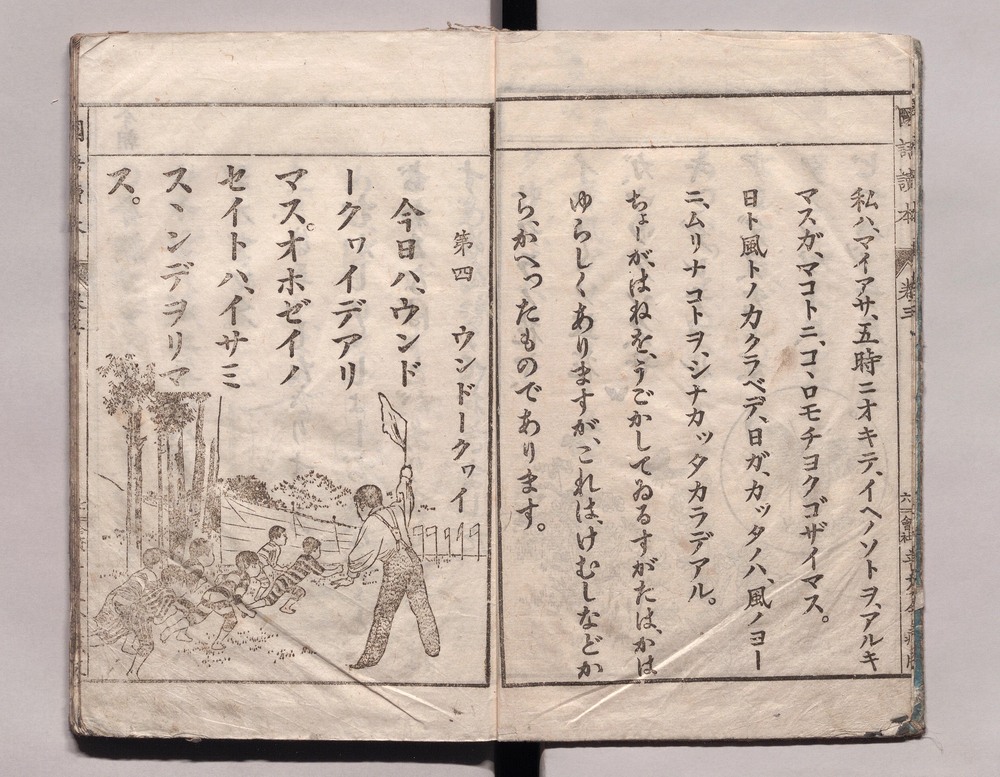 國語讀本
卷三
私ハ、マイアサ、五時ニオキテ、イヘノソトヲ、アルキ
マスガ、マコトニ、コヽロモチヨクゴザイマス。
日ト風トノカクラベデ、日ガ、カッタノハ、風ノヨー
ニ、ムリナコトヲ、シナカッタカラデアル。
ちょーが、はねを、うごかしてゐるすがたは、かは
ゆらしくありますが、これは、けむしなどか
ら、かへったものであります。
第四 ウンドークヮイ
今日ハ、ウンド
ークヮイデアリ
マス。オホゼイノ
セイトハ、イサミ
スヽンデヲリマ
ス。